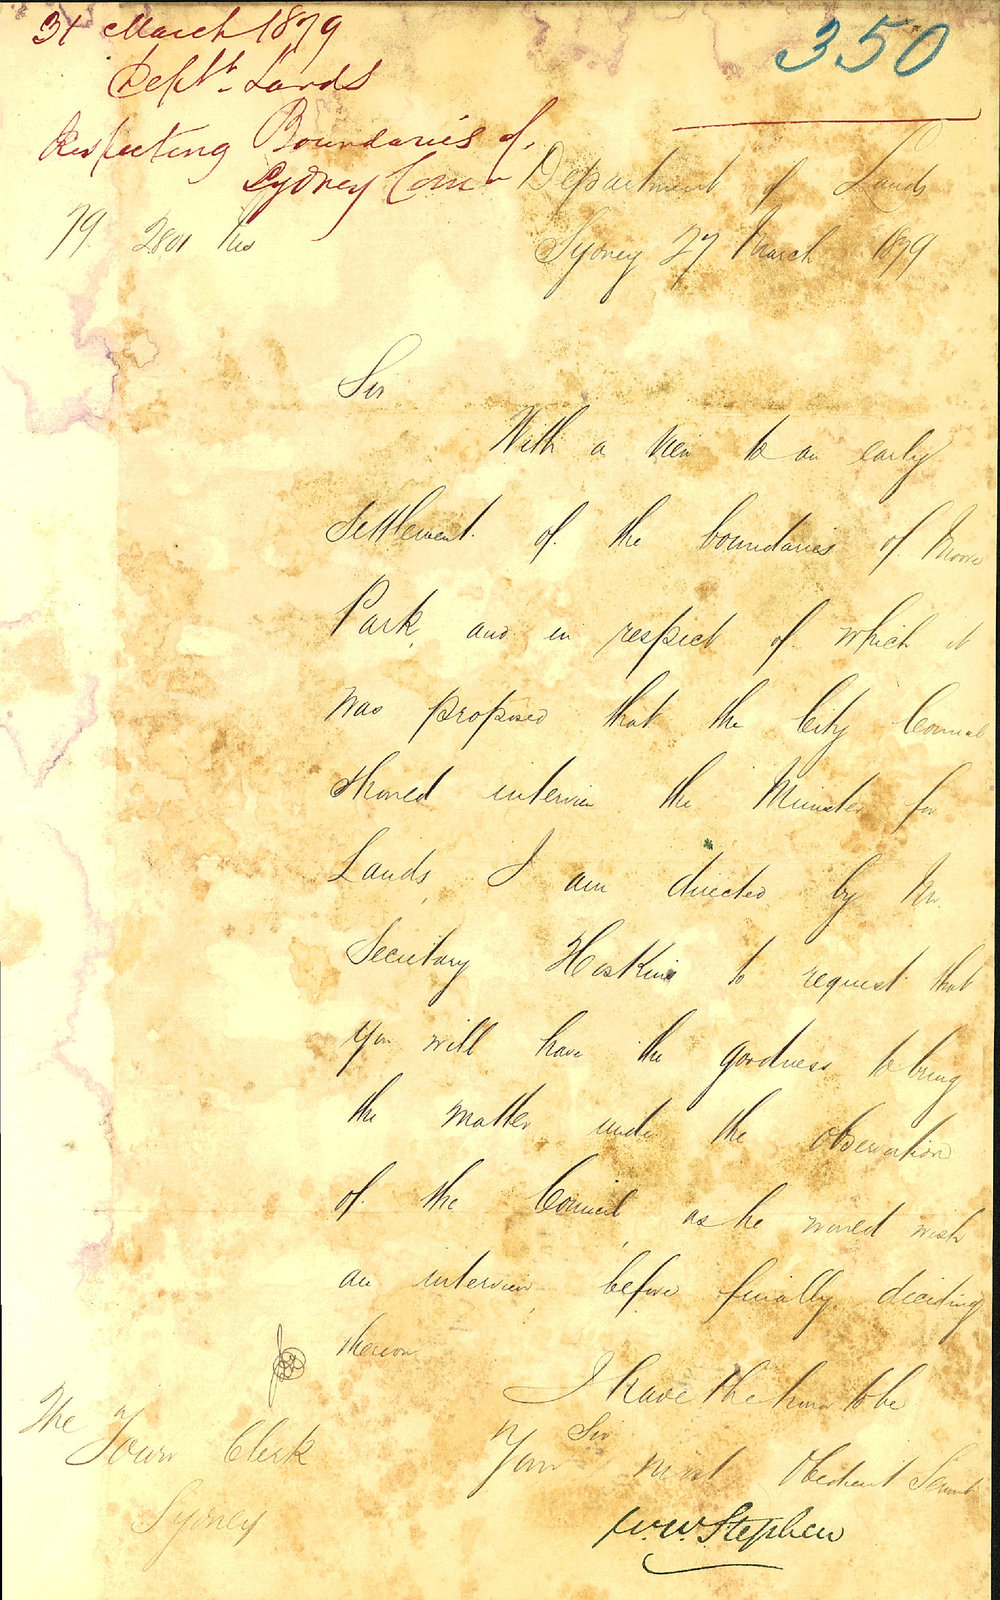 31 March 1879
350
Dept. Lands
Respecting Boundaries of
Sydney Com
Department of Lands
79. 2801
Sydney 27 March 1879
Sir
With a view to an early
settlement of the boundaries of Moore
Park, and in respect of which it
was proposed that the City Council
should interview the Minister for
Lands, I am directed by Mr.
Secretary Hoskins to request that
you will have the goodness to bring
the matter under the observation
of the Council, as he would wish
an interview, before finally deciding
thereon.
I have the honor to be
Sir
Your most Obedient Servant
W.W. Stephen
The Town Clerk
Sydney